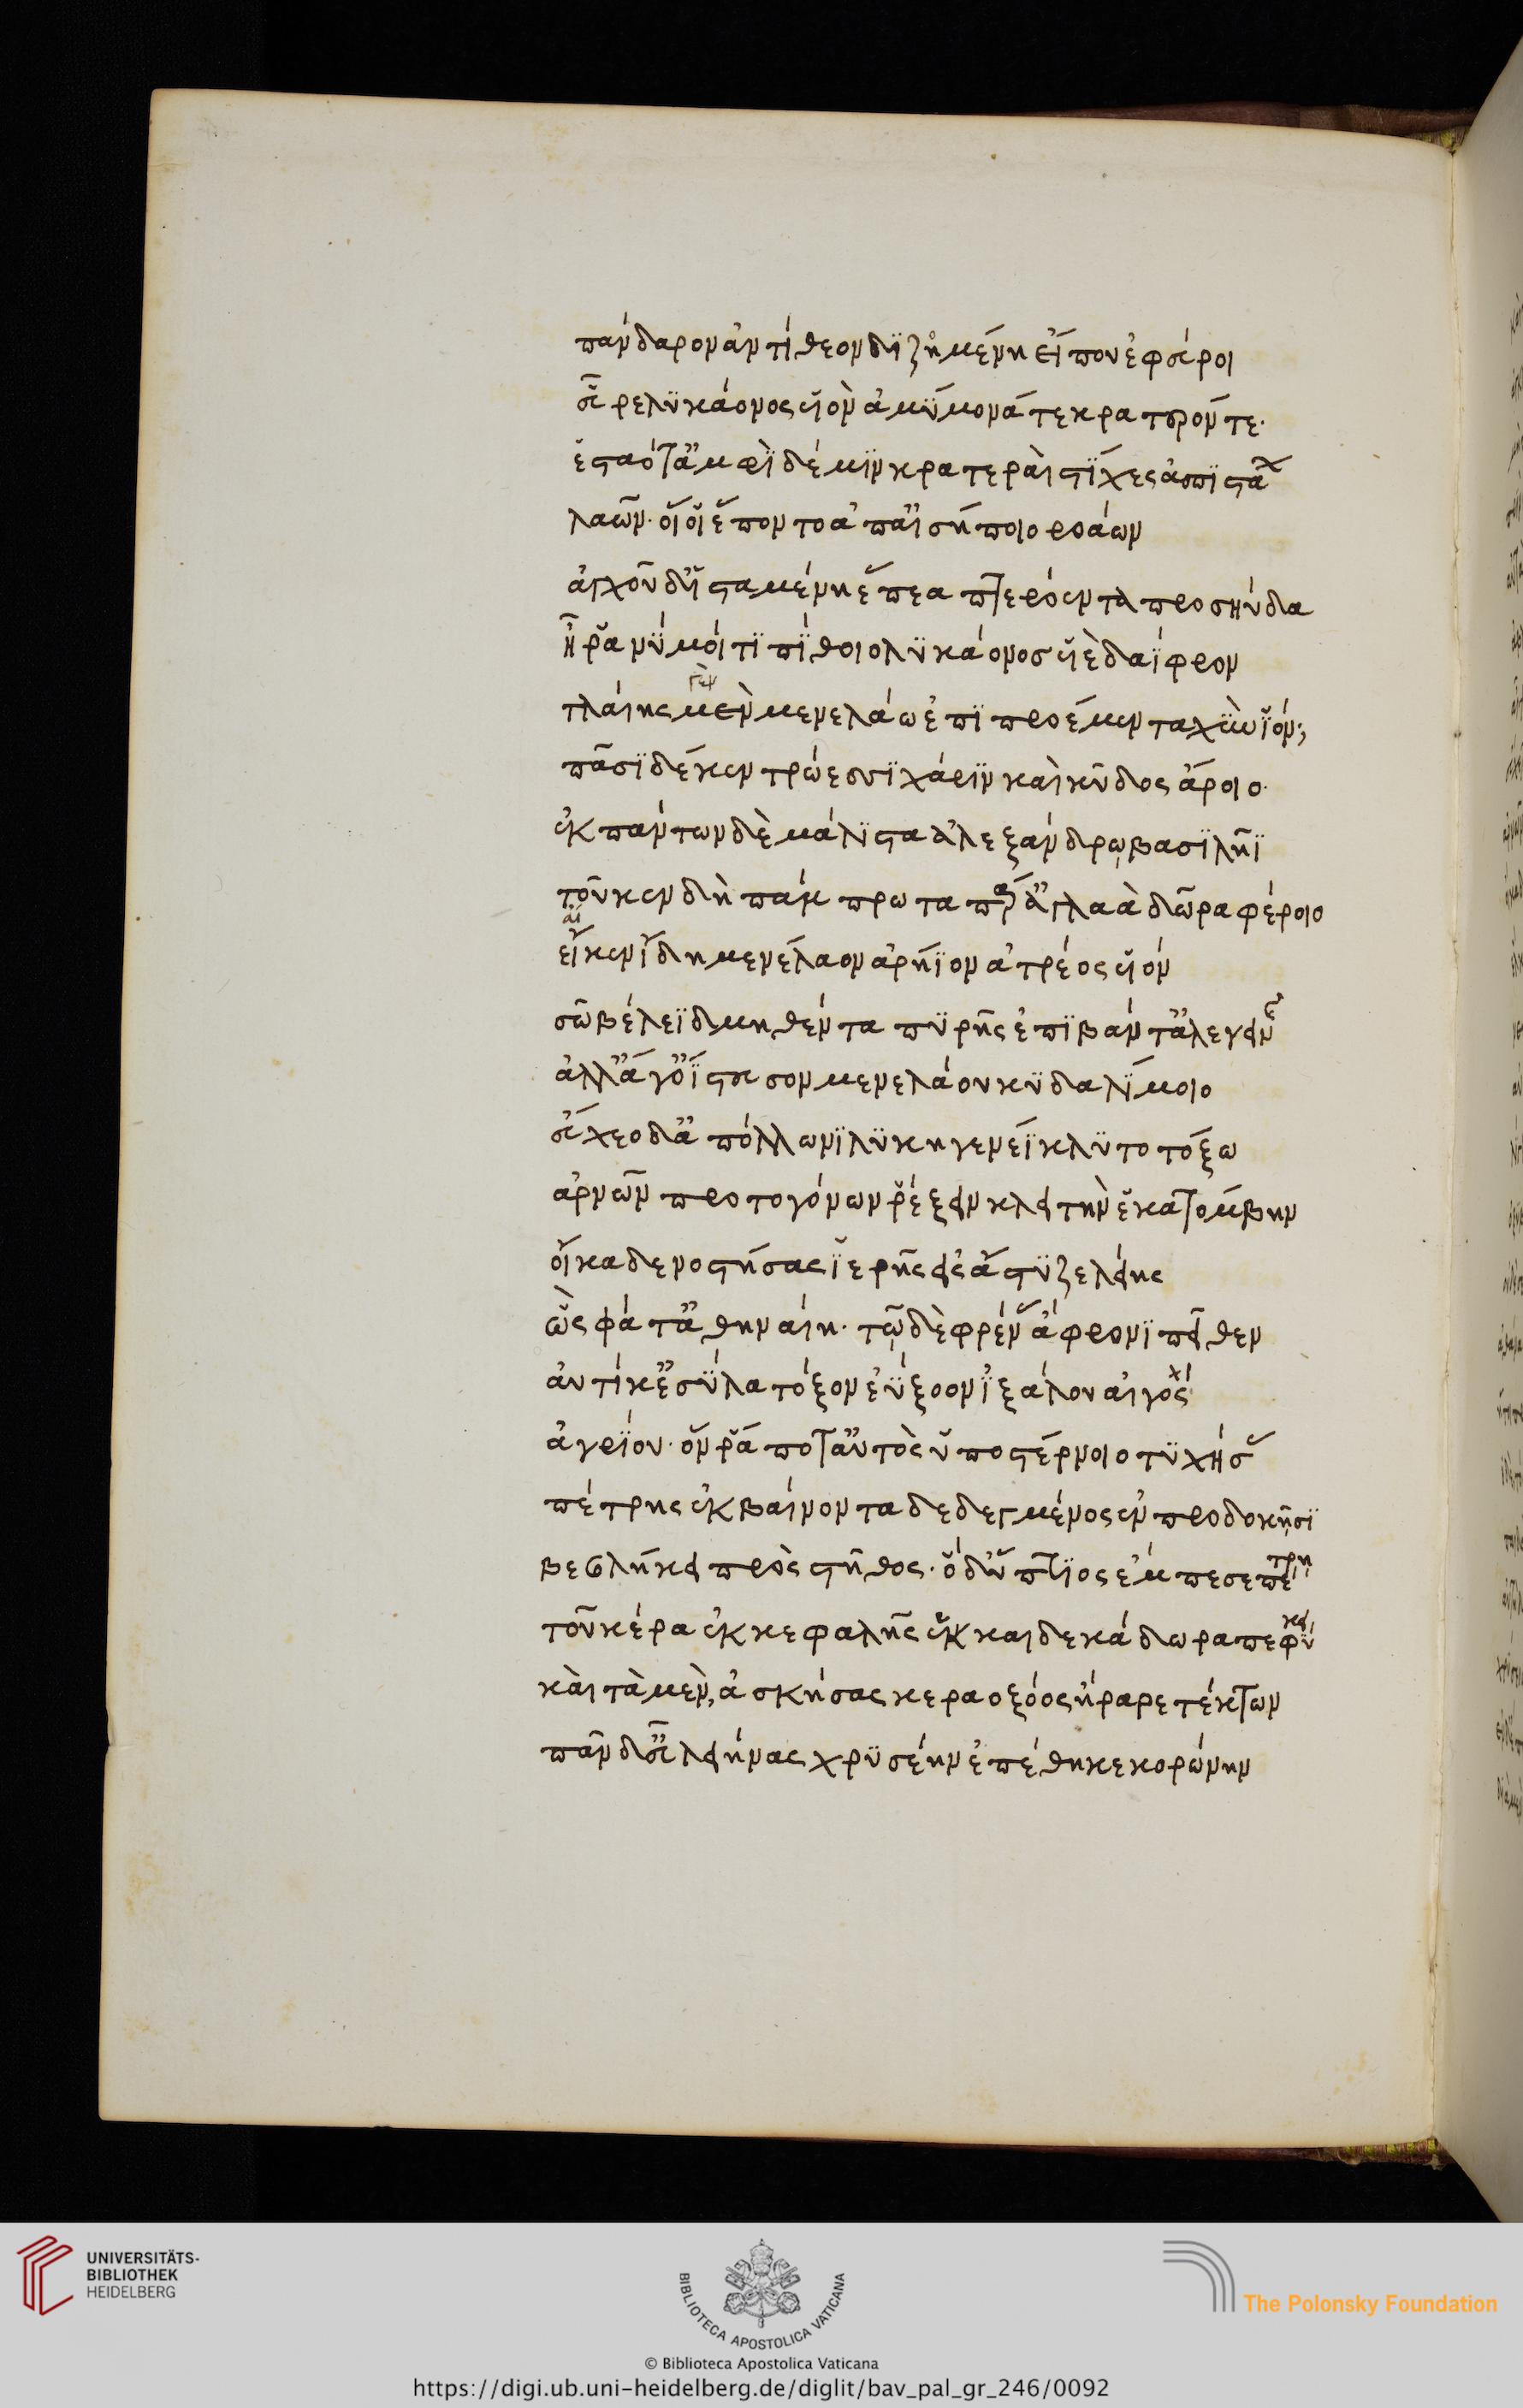 πάνδαρον ἀντίθεον διζημένη εἴ που ἐφεύροι
εὗρε λυκάονος υἱὸν ἀμύμονά τε κρατερόν τε·
ἑσταότ' ἀμφὶ δέ μιν κρατεραὶ στίχες ἀσπιστά
λαῶν· οἵ οἱ ἕποντο ἀπ' αἰσήποιο ροάων
ἀγχοῦ δ' ἱσταμένη ἔπεα πτερόεντα προσηύδα
ἦ ῥά νύ μοί τι πίθοιο λυκάονος υἱὲ δαίφρον
τλαίης κεν
μὲν μενελάω ἐπι προέμεν ταχὺν ἰόν;
πᾶσι δέ κεν τρώεσσι χάριν καὶ κῦδος ἄροιο·
ἐκ πάντων δὲ μάλιστα ἀλεξάνδρῳ βασιλῆϊ
τοῦ κεν δὴ πάμπρωτα παρ' ἀγλαὰ δῶρα φέροιο
αἴ
εἴ κεν ἴδη μενέλαον ἀρήϊον ἀτρέος υἱόν
σῶ βέλεϊ δμηθέντα πυρῆς ἐπιβάντ' ἀλεγεινῆς
ἀλλ' ἄγ' ὀΐστευσον μενελάου κυδαλίμοιο
εὔχεο δ' ἀπόλλωνι λυκηγενέϊ κλυτοτόξω
ἀρνῶν πρωτογόνων ῥέξειν κλειτὴν ἑκατόμβην
οἴκαδε νοστήσας ἱερῆς εἰς ἄστυ ζελείης
ὣς φάτ' ἀθηναίη· τῷ δὲ φρέν' ἄφρονι πεῖθεν
αὐτίκ' ἐσύλα τόξον ἐΰξοον ἰξάλου αἰγὸς
ἀγρίου· ὅν ῥά ποτ' αὐτὸς ὑπο στέρνοιο τυχήσας
πέτρης ἐκβαίνοντα δεδεγμένος ἐν προδοκῇσι
βεβλήκει πρὸς στῆθος· ὁ δ' ὕπτιος ἔμπεσε πέτρη
τοῦ κέρα ἐκ κεφαλῆς ἑκκαιδεκάδωρα πεφύκει
καὶ τὰ μὲν, ἀσκήσας κεραοξόος ἤραρε τέκτων
πᾶν δ' εὖ λειήνας χρυσέην ἐπέθηκε κορώνην
UNIVERSITÄTS-
BIBLIOTHEK
HEIDELBERG
BIBLIOTECA APOSTOLICA VATICANA
The Polonsky Foundation
© Biblioteca Apostolica Vaticana
https://digi.ub.uni-heidelberg.de/diglit/bav_pal_gr_246/0092